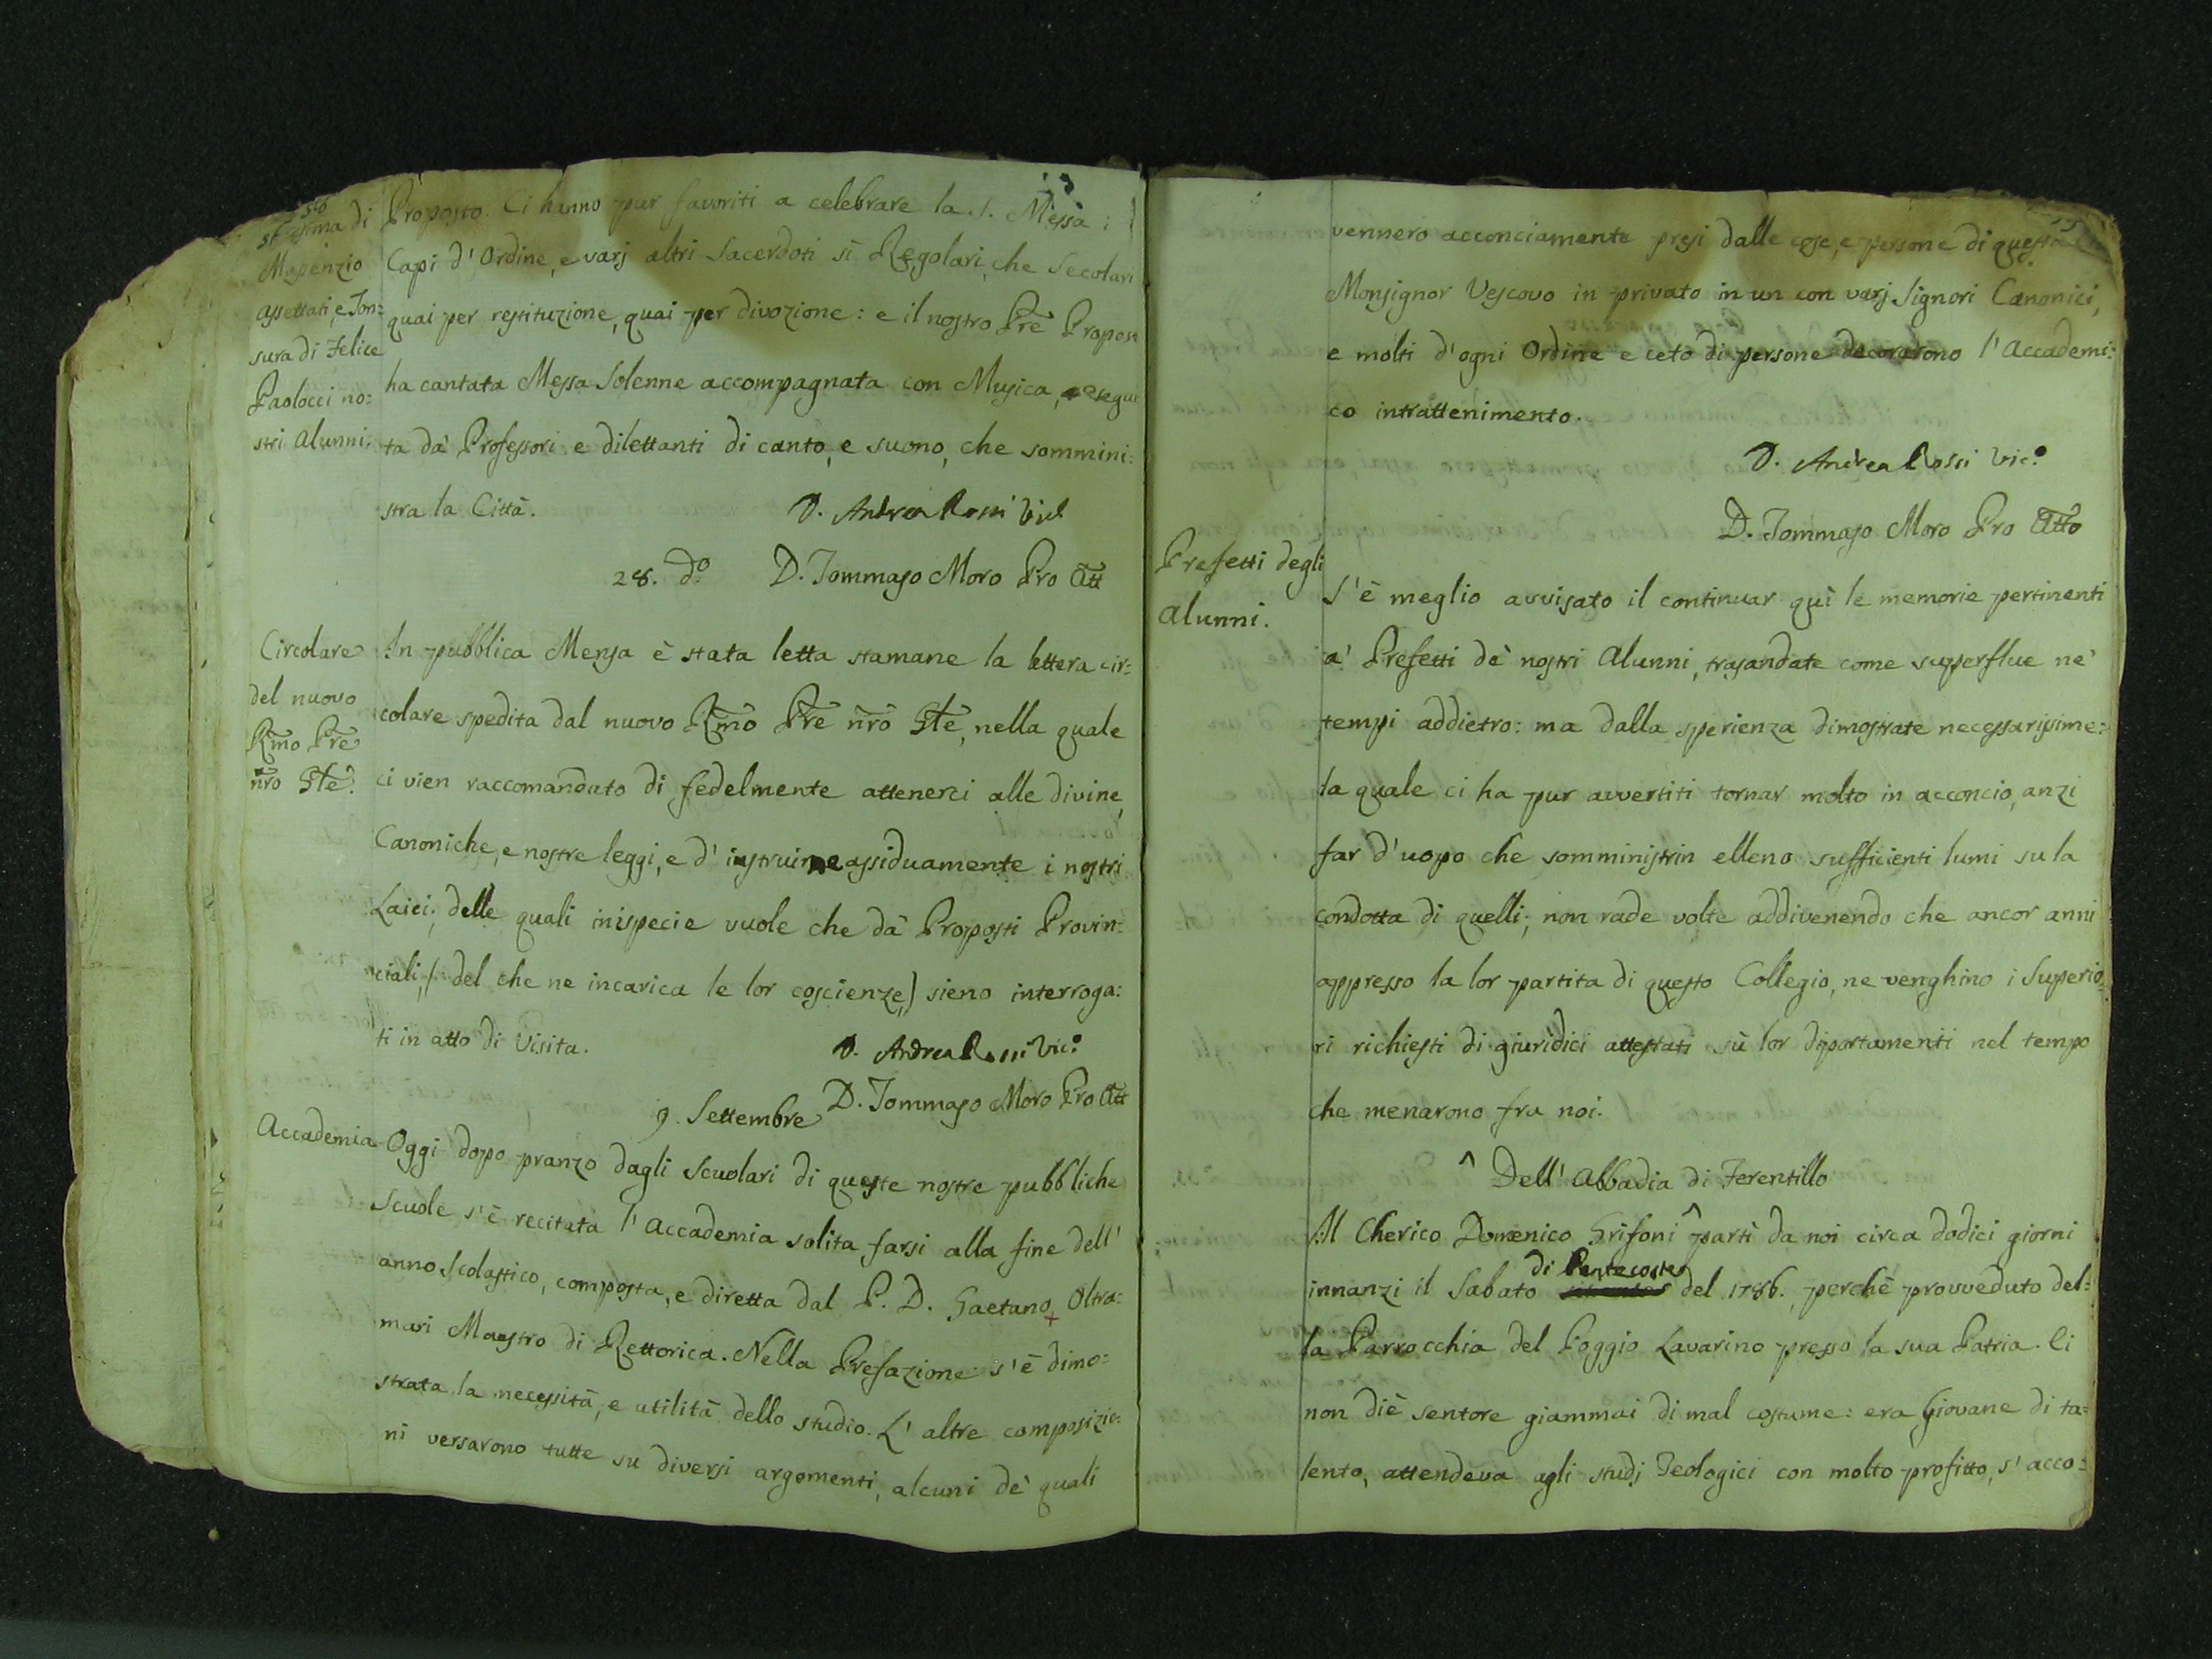 Cresima di
Massenzio
Assettati, e Ton=
sura di Felice
Paolocci no=
stri Alunni.
Proposto. Ci hanno pur favoriti a celebrare la S. Messa i
Capi d'Ordine, e varj altri Sacerdoti sì Regolari, che Secolari
quai per restituzione, quai per divozione: e il nostro Pre Propos
ha cantata Messa Solenne accompagnata con Musica, esegui
ta da' Professori e dilettanti di canto, e suono, che sommini=
stra la Città.
D. Andrea Rossi Vic
28. do
D. Tommaso Moro Pro Att
Circolare
del nuovo
Rmo Pre
nro Gle.
In pubblica Mensa è stata letta stamane la lettera cir=
colare spedita dal nuovo Rmo Pre nro Gle, nella quale
ci vien raccomandato di fedelmente attenerci alle divine,
Canoniche, e nostre leggi, e d'instruire assiduamente i nostri
Laici; delle quali inispecie vuole che da' Proposti Provin=
ciali, (del che ne incarica le lor coscienze,) sieno interroga=
ti in atto di Visita.
D. Andrea Rossi Vic.o
D. Tommaso Moro Pro Att
9. Settembre
Accademia
Oggi dopo pranzo dagli Scuolari di queste nostre pubbliche
Scuole s'è recitata l'Accademia solita farsi alla fine dell'
anno Scolastico, composta, e diretta dal P. D. Gaetano Oltra=
mari Maestro di Rettorica. Nella Prefazione s'è dimo=
strata la necessità, e utilità dello studio. L'altre composizio=
ni versarono tutte su diversi argomenti, alcuni de' quali
vennero acconciamente presi dalle cose, e persone di questa
Monsignor Vescovo in privato in un con varj Signori Canonici,
e molti d'ogni Ordine e ceto di persone decorarono l'Accademi=
co intrattenimento.
D. Andrea Rossi Vic.o
D. Tommaso Moro Pro Atto
Prefetti degli
Alunni.
S'è meglio avvisato il continuar quì le memorie pertinenti
a' Prefetti de' nostri Alunni, trasandate come superflue ne'
tempi addietro: ma dalla sperienza dimostrate necessarissime:
la quale ci ha pur avvertiti tornar molto in acconcio, anzi
far d'uopo che somministrin elleno sufficienti lumi su la
condotta di quelli; non rade volte addivenendo che ancor anni
appresso la lor partita di questo Collegio, ne venghino i Superio=
ri richiesti di giuridici attestati sù lor diportamenti nel tempo
che menarono fra noi.
^ Dell'Abbadia di Ferentillo
Il Cherico Domenico Grifoni ^ partì da noi circa dodici giorni
di Pentecoste
innanzi il Sabato del 1786. perchè provveduto del=
la Parrocchia del Poggio Lavarino presso la sua Patria. Ci
non diè sentore giammai di mal costume: era Giovane di ta=
lento, attendeva agli studj Teologici con molto profitto, s'acco=